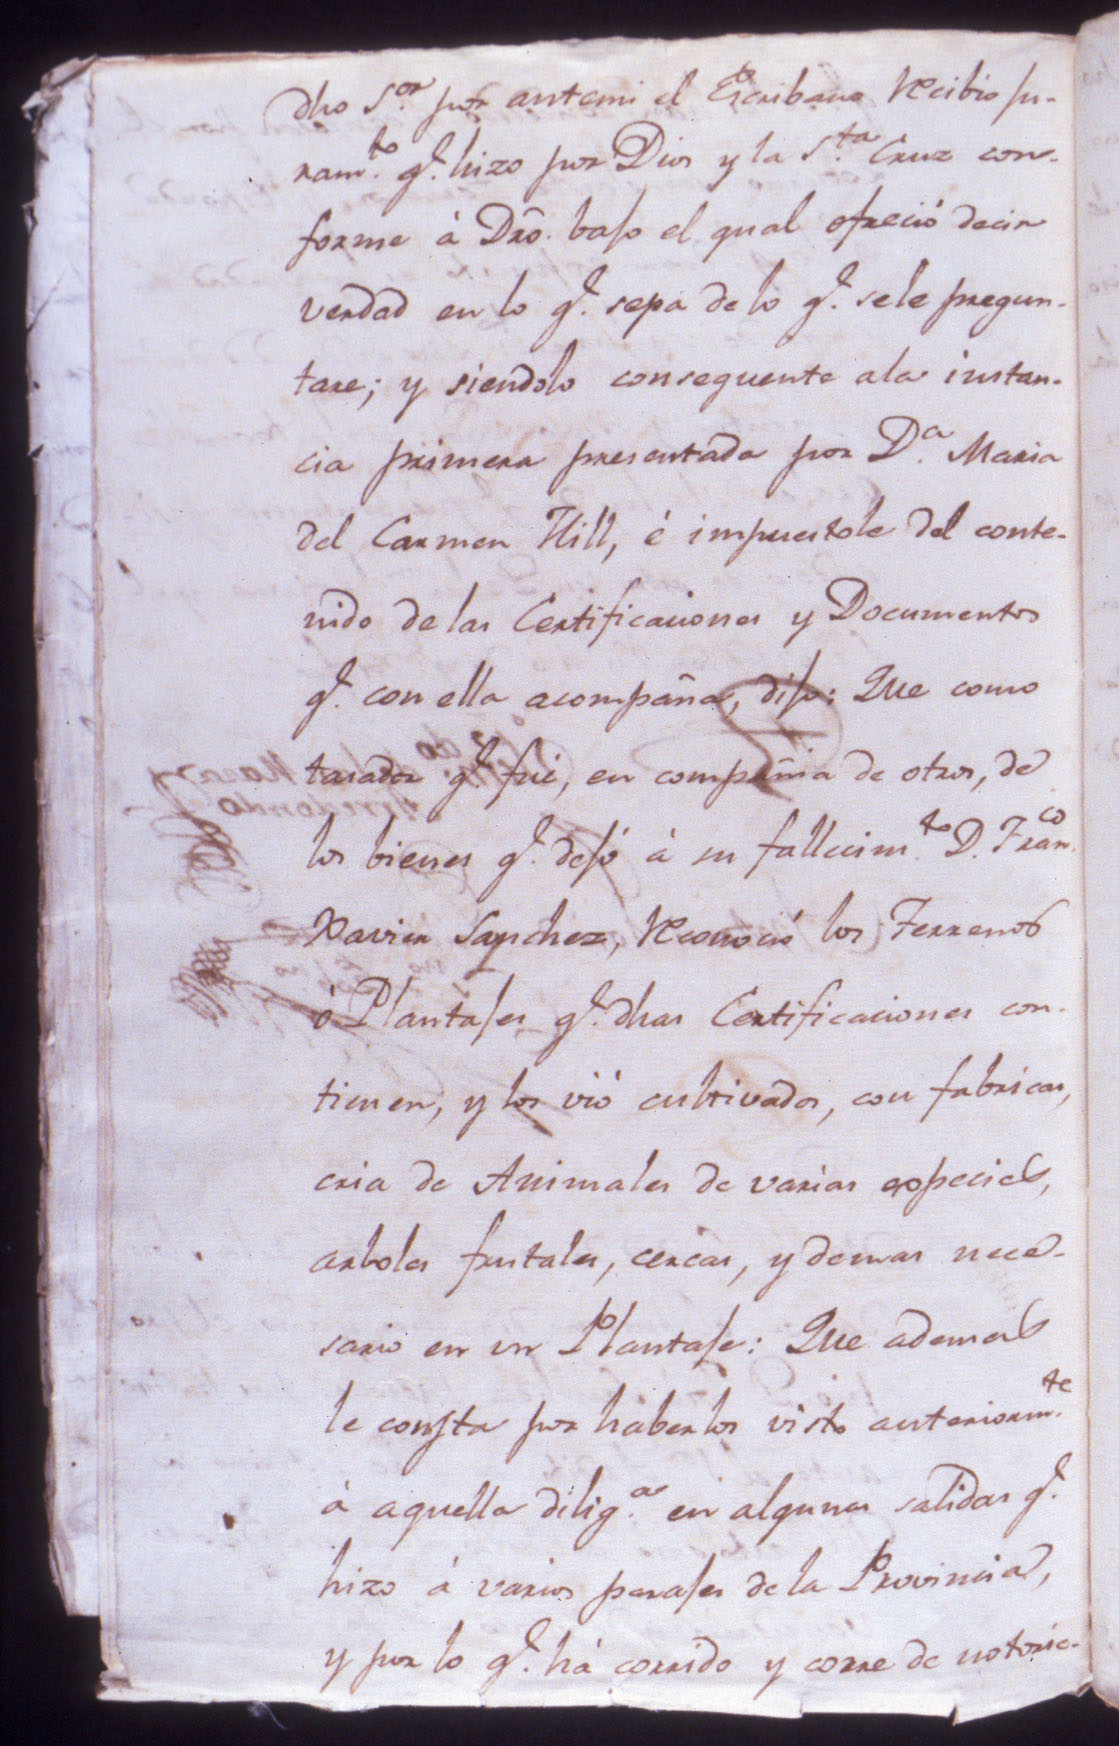 dho S.or por antemi el Escribano Recibio ju-
ram.to q.e hizo por Dios y la S.ta Cruz con-
forme à Dro. bajo el qual ofreció decir
verdad en lo q.e sepa de lo q.e sele pregun-
tare; y siendolo conseguente ala instan-
cia primera presentada por D.a Maria
del Carmen Hill, é impuestole del conte-
nido de las Certificaciones y Documentos
q.e con ella acompaña, dijo: Que como
tasador q.e fué, en compañia de otros, de
los bienes q.e dejó à su fallecim.to D. Fran.co
Xavier Sanchez, Reconoció los Terrenos
ó Plantajes q.e dhas Certificaciones con-
tienen, y los vió cultivados, con fabricas,
cria de Animales de varias especies,
arboles frutales, cercas, y demas nece-
sario en un Plantaje: Que ademas
le consta por haberlos visto anteriorm.te
á aquella dilig.a en algunas salidas q.e
hizo á varios parajes de la Provincia,
y por lo q.e há corrido y corre de notorie-